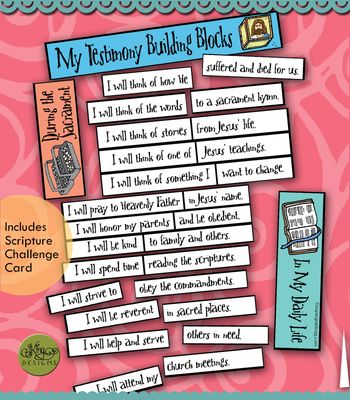 My Testimony Building Blocks
During the
Sacrament
I will think of how He suffered and died for us.
I will think of the words to a sacrament hymn.
I will think of stories from Jesus' life.
I will think of one of Jesus' teachings.
I will think of something I want to change.
Includes
Scripture
Challenge
Card
In My Daily Life
I will pray to Heavenly Father in Jesus' name.
I will honor my parents and be obedient.
I will be kind to family and others.
I will spend time reading the scriptures.
I will strive to obey the commandments.
I will be reverent in sacred places.
I will help and serve others in need.
I will attend my church meetings.
DESIGNS